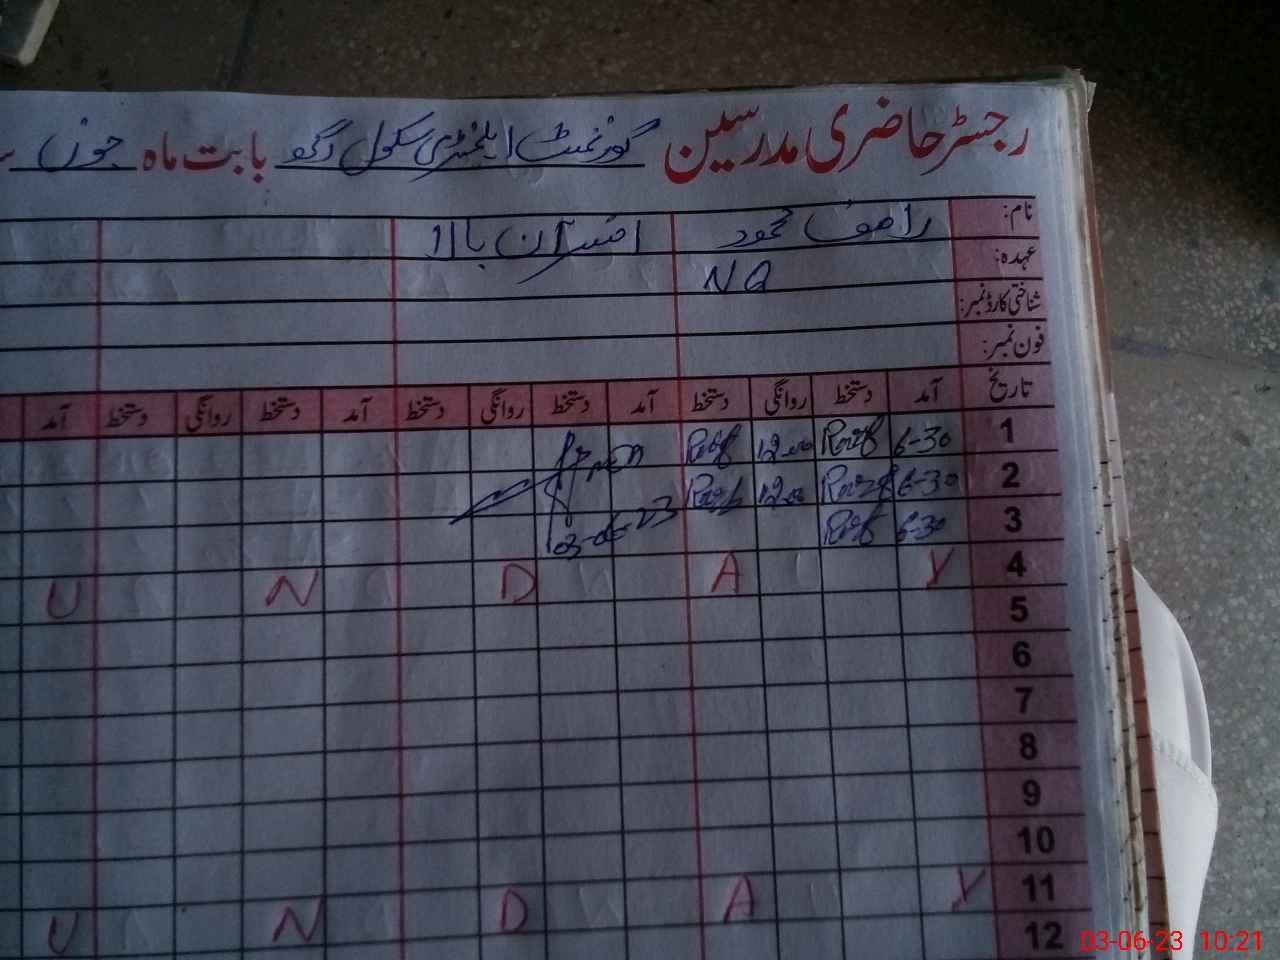 رجسٹر حاضری مدرسین گورنمنٹ ایلیمنٹری سکول رگو بابت ماہ جون
نام: راصف محمود افسران بالا
عہدہ: NQ
شناختی کارڈ نمبر:
فون نمبر:
تاریخ آمد دستخط روانگی دستخط آمد دستخط روانگی دستخط آمد دستخط روانگی دستخط آمد
1 6-30 12-00
2 6-30 12-00
3 6-30 03-06-23
4 Y A D N U
5
6
7
8
9
10
11 Y A D N U
12
03-06-23 10:21